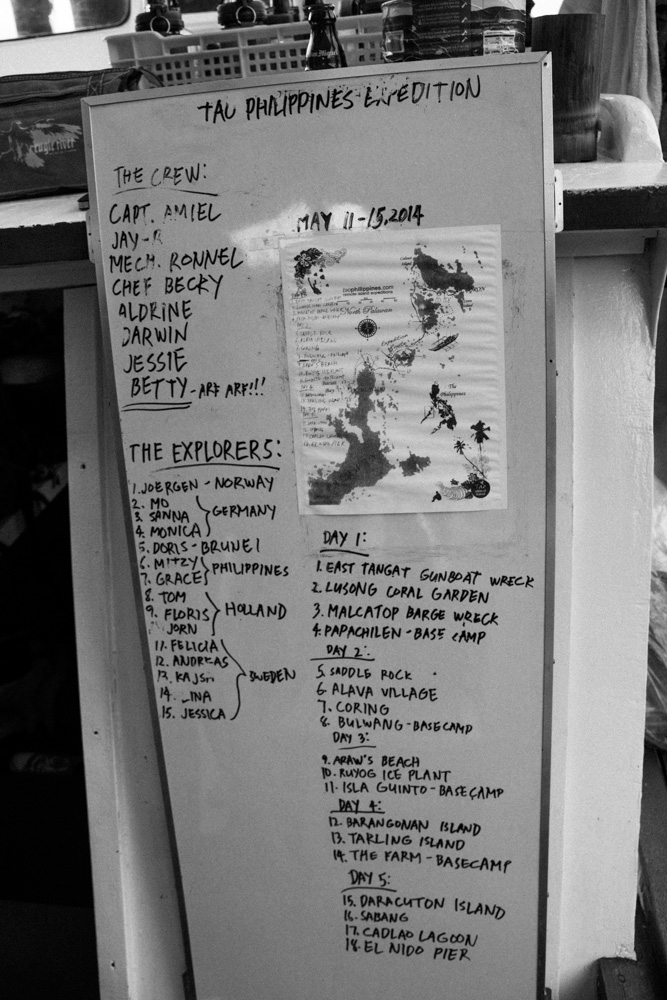 TAO PHILIPPINES EXPEDITION
THE CREW:
CAPT. AMIEL
JAY-R
MECH. RONNEL
CHEF BECKY
ALDRINE
DARWIN
JESSIE
BETTY - ARF ARF!!!
THE EXPLORERS:
1. JOERGEN - NORWAY
2. MO
3. SANNA
4. MONICA
GERMANY
5. DORIS - BRUNEI
6. MITZY
7. GRACE
PHILIPPINES
8. TOM
9. FLORIS
JORN
HOLLAND
11. FELICIA
12. ANDREAS
13. KAJSA
14. LINA
15. JESSICA
SWEDEN
MAY 11-15, 2014
taophilippines.com
North Palawan
The Philippines
DAY 1:
1. EAST TANGAT GUNBOAT WRECK
2. LUSONG CORAL GARDEN
3. MALCATOP BARGE WRECK
4. PAPACHILEN - BASE CAMP
DAY 2:
5. SADDLE ROCK
6. ALAVA VILLAGE
7. CORING
8. BULWANG - BASECAMP
DAY 3:
9. ARAW'S BEACH
10. RUYOG ICE PLANT
11. ISLA GUINTO - BASECAMP
DAY 4:
12. BARANGONAN ISLAND
13. TARLING ISLAND
14. THE FARM - BASECAMP
DAY 5:
15. DARACUTON ISLAND
16. SABANG
17. CADLAO LAGOON
18. EL NIDO PIER